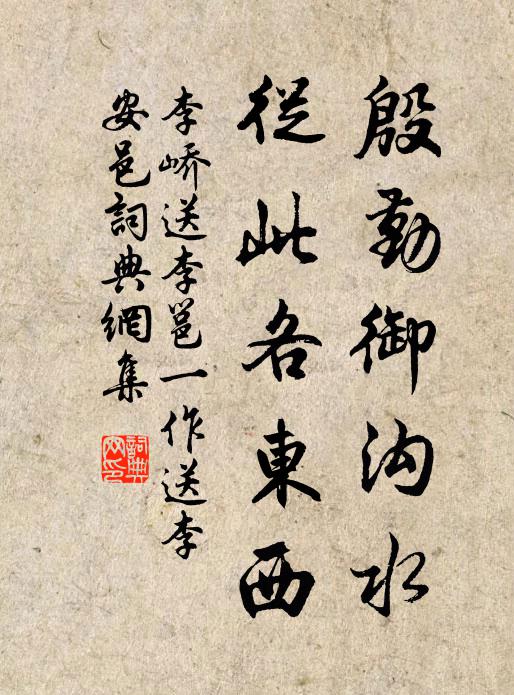 殷勤御沟水
從此各東西
李嶠送李邕一作送李
安邑詞典網集
詞典
网印